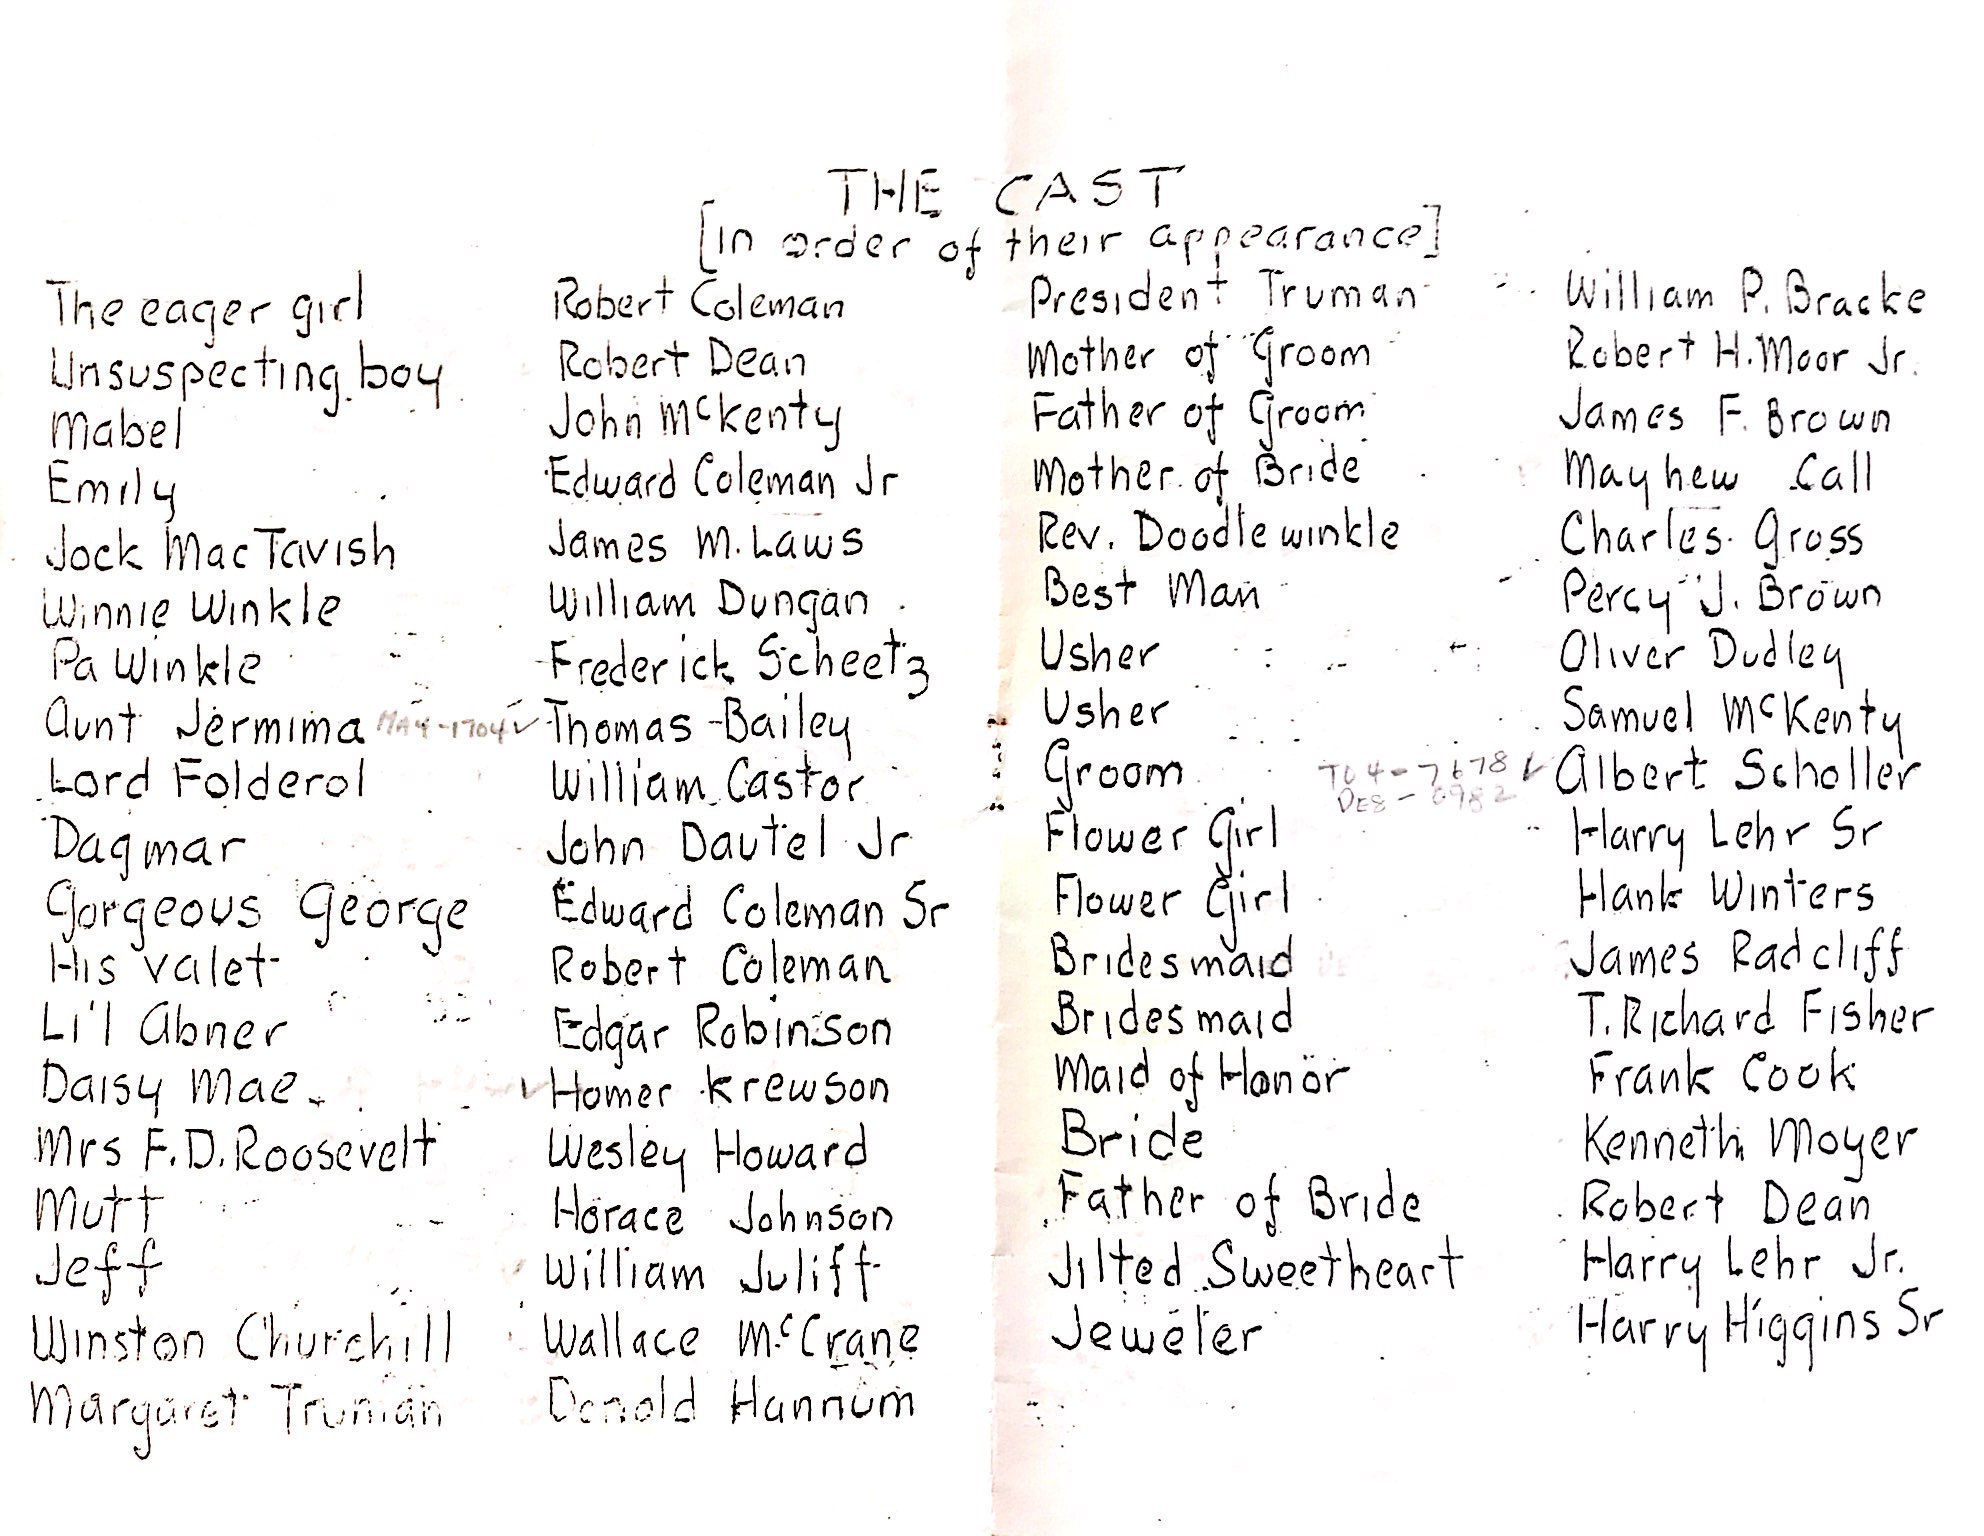 THE CAST
[in order of their appearance]
The eager girl Robert Coleman
Unsuspecting boy Robert Dean
Mabel John McKenty
Emily Edward Coleman Jr
Jock MacTavish James M. Laws
Winnie Winkle William Dungan
Pa Winkle Frederick Scheetz
Aunt Jermima MA4-1704 ✓ Thomas Bailey
Lord Folderol William Castor
Dagmar John Dautel Jr
Gorgeous George Edward Coleman Sr
His valet Robert Coleman
Li'l Abner Edgar Robinson
Daisy Mae ✓ Homer Krewson
Mrs F.D. Roosevelt Wesley Howard
Mutt Horace Johnson
Jeff William Juliff
Winston Churchill Wallace McCrane
Margaret Truman Donald Hannum
President Truman William P. Bracke
Mother of Groom Robert H. Moor Jr.
Father of Groom James F. Brown
Mother of Bride Mayhew Call
Rev. Doodlewinkle Charles Gross
Best Man Percy J. Brown
Usher Oliver Dudley
Usher Samuel McKenty
Groom TU4-7678 ✓ Albert Scholler
DE8-
Flower Girl Harry Lehr Sr
Flower Girl Hank Winters
Bridesmaid James Radcliff
Bridesmaid T. Richard Fisher
Maid of Honor Frank Cook
Bride Kenneth Moyer
Father of Bride Robert Dean
Jilted Sweetheart Harry Lehr Jr.
Jeweler Harry Higgins Sr